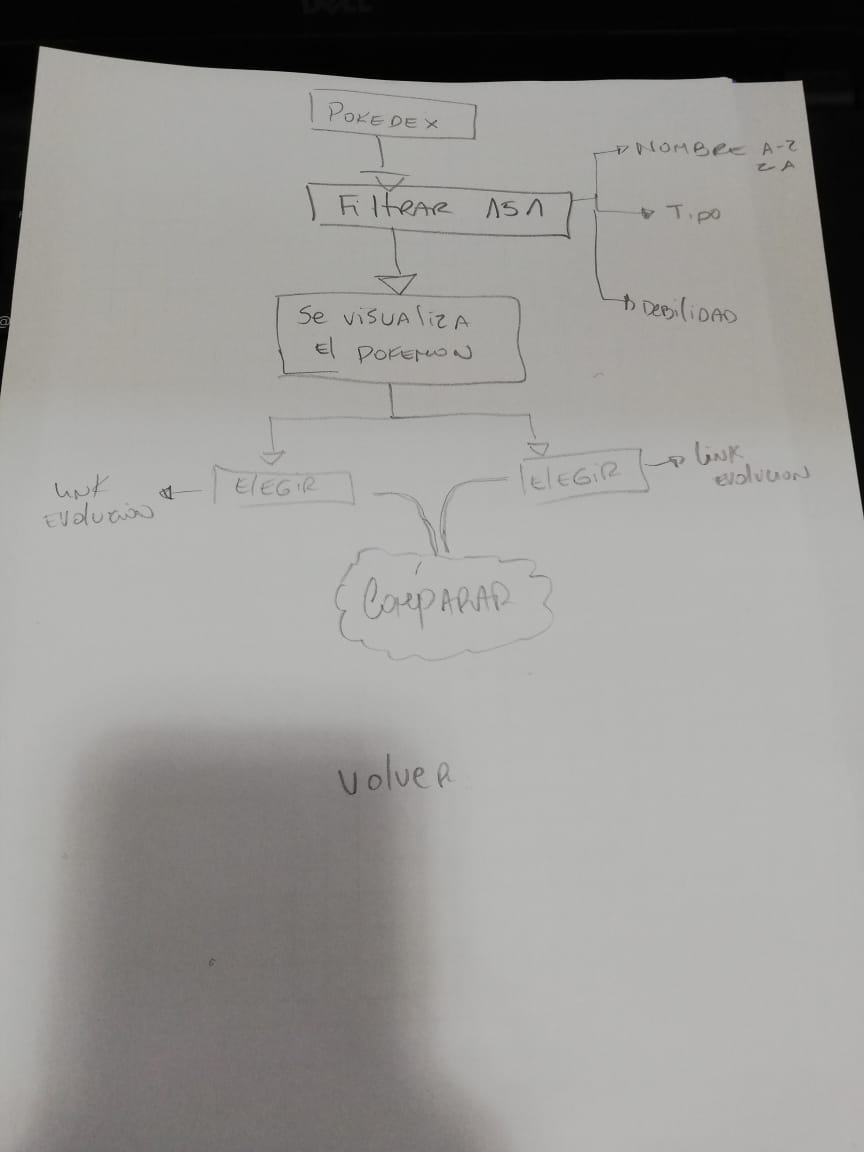 DELL
POKEDEX
FiltRAR 151
NOMBRE A-Z
Z A
Tipo
DEBiliDAD
Se VISUALIZA
El POKEMON
ElEGiR
link
EVOlUCION
ElEGiR
link
EVOlUCION
COMPARAR
VolveR
@